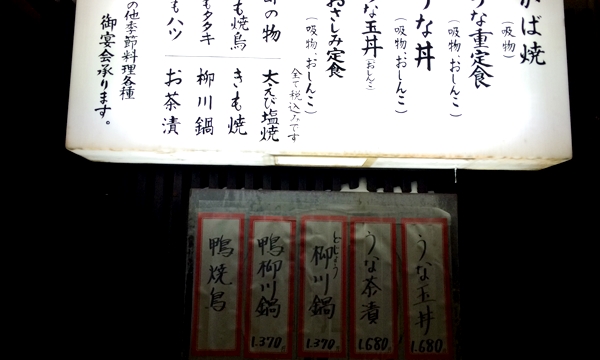 かば焼
(吸物)
うな重定食
(吸物、おしんこ)
うな丼
(吸物、おしんこ)
うな玉丼(おしんこ)
おさしみ定食
(吸物、おしんこ)
の物
大えび塩焼
全て税込みです
も焼鳥
きも焼
もタタキ
柳川鍋
もハツ
お茶漬
の他季節料理各種
御宴会承ります。
うな玉丼
1.680.
うな茶漬
1.680.
どじょう
柳川鍋
1.370.
鴨柳川鍋
1.370.
鴨焼鳥